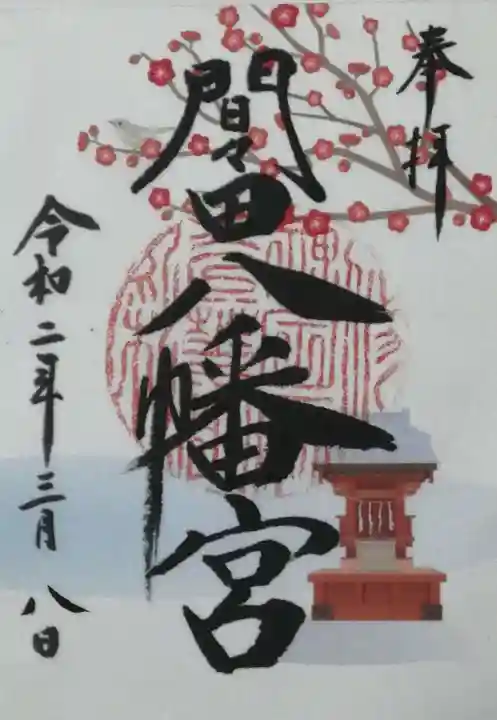 奉拝
間々田八幡宮
令和二年三月八日